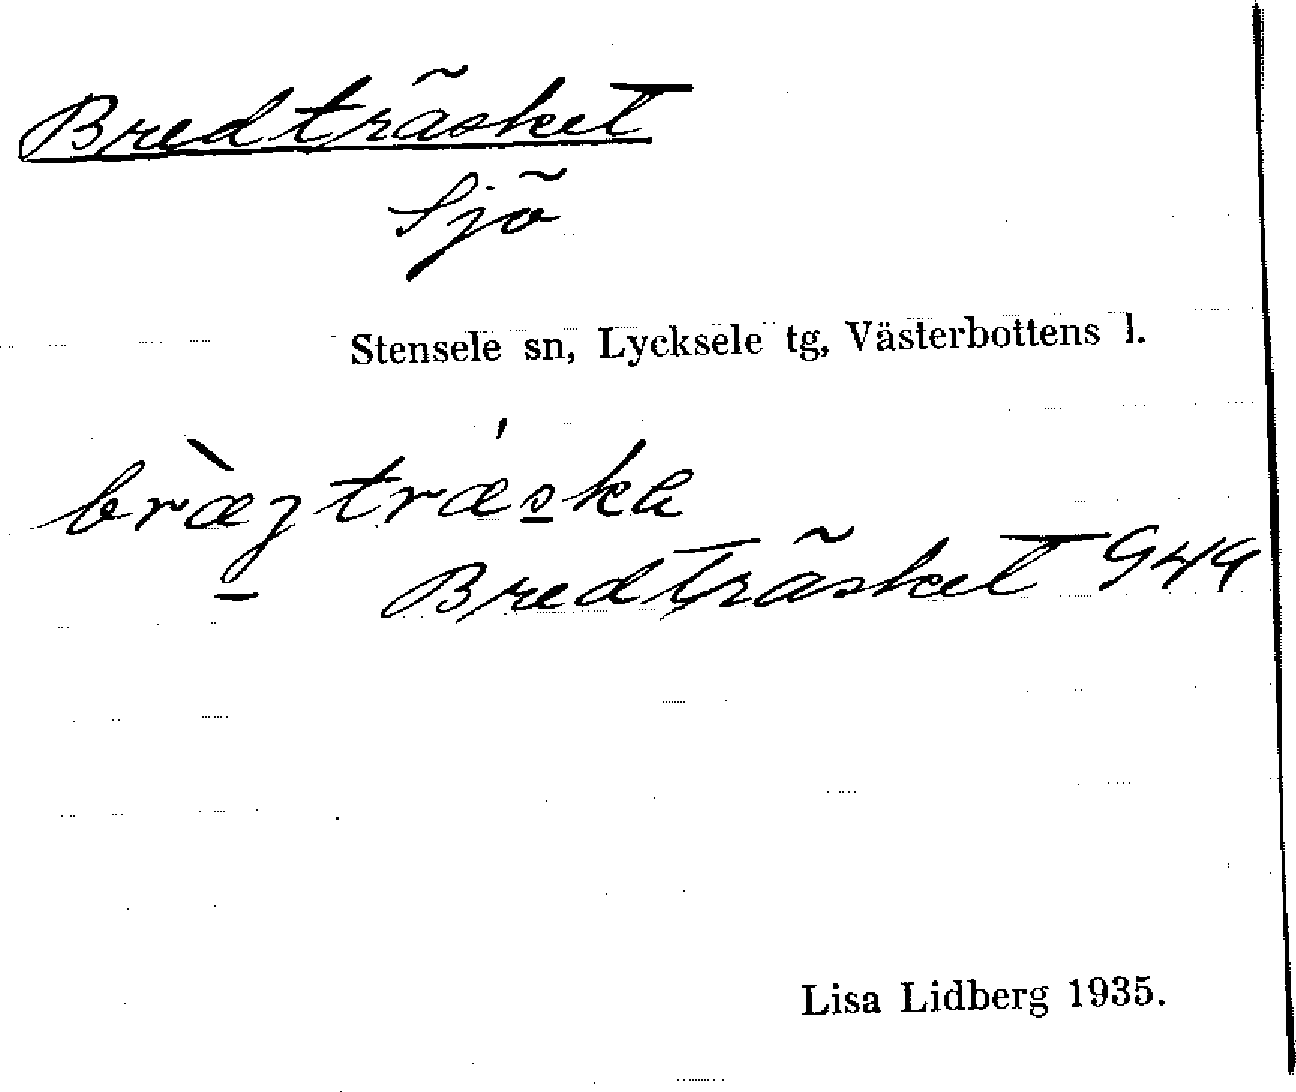 Bredträsket
Sjö
Stensele sn, Lycksele tg, Västerbottens l.
Bredträsket
Lisa Lidberg 1935.